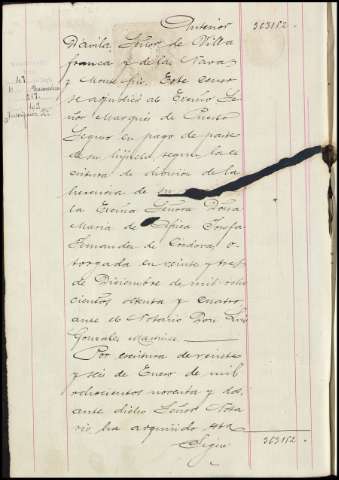 Anterior 363152.
Dávila, Señor de Villa
franca y de las Navas
y Monte frio. Este censo
se adjudicó al Excmo Se
ñor Marqués de Puerto
Seguro en pago de parte
de su hijuela, segun la es
critura de division de la
herencia de su
la Excma Señora Doña
Maria de Josefa
Fernandez de Cordova o-
torgada en veinte y tres
de Diciembre de mil ocho
cientos ochenta y cuatro
ante el Notario Don Luis
Gonzalez Martinez.
Por escritura de veinte
y seis de Enero de mil
ochocientos noventa y dos,
ante dicho Señor Nota
rio ha adquirido
Sigue 363152.